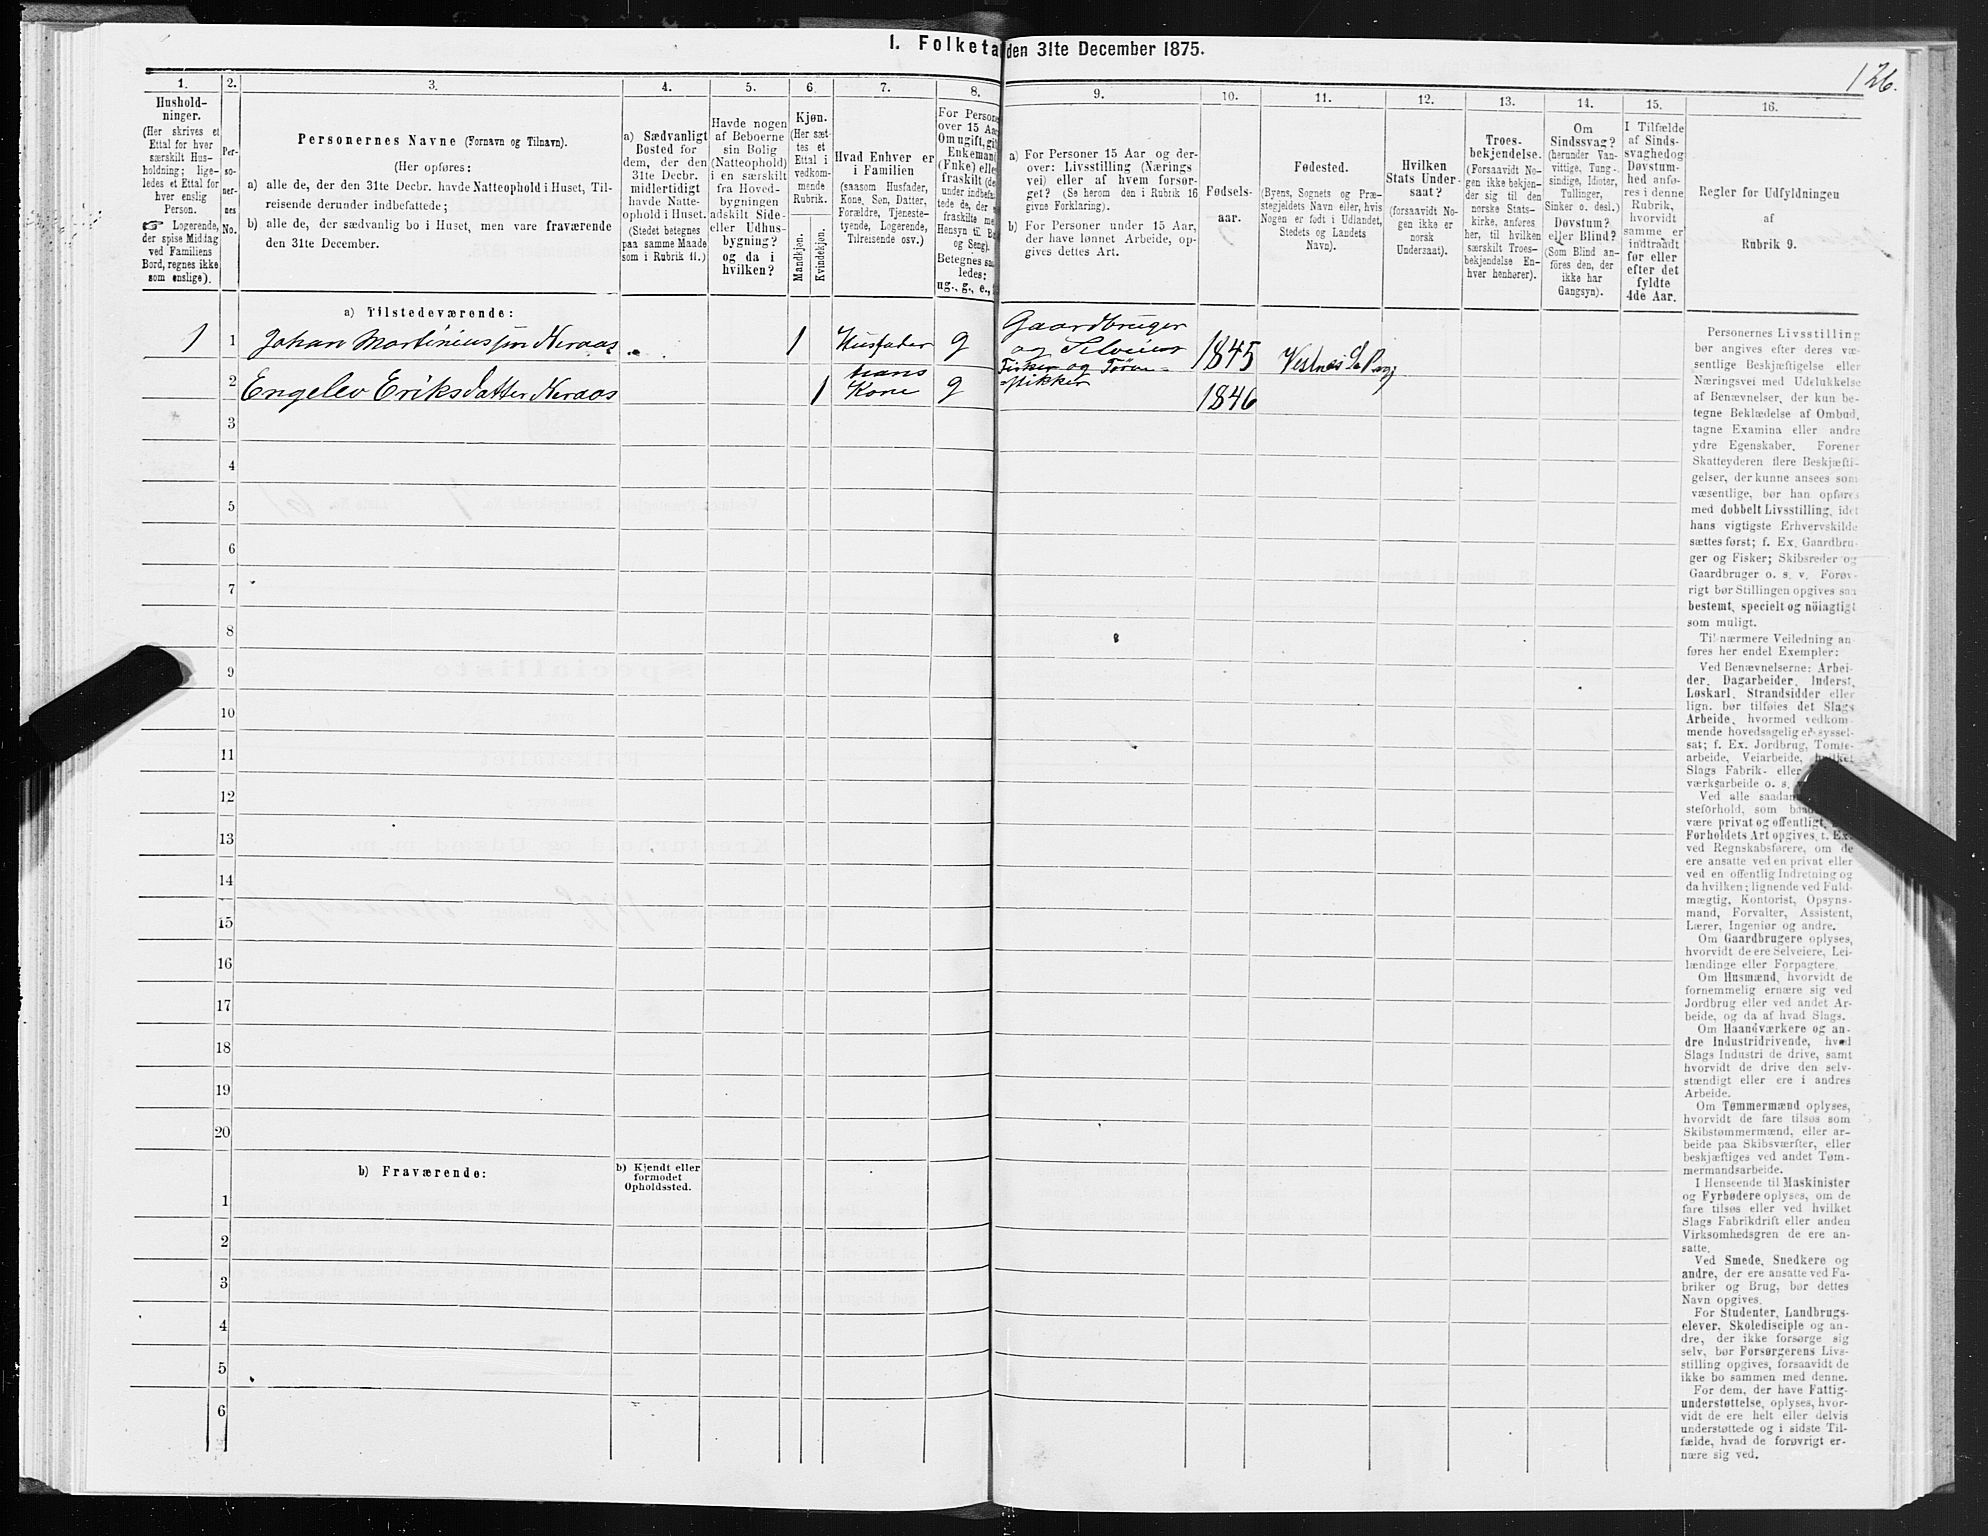 I. Folketa den 31te December 1875.
126.
1.
Hushold-
ninger.
(Her skrives et
Ettal for hver
særskilt Hus-
holdning; lige-
ledes et Ettal for
hver enslig
Person.
☞ Logerende,
der spise Middag
ved Familiens
Bord, regnes ikke
som enslige).
2.
Per-
so-
ner-
nes
No.
3.
Personernes Navne (Fornavn og Tilnavn).
(Her opføres:
a) alle de, der den 31te Decbr. havde Natteophold i Huset, Til-
reisende derunder indbefattede;
b) alle de, der sædvanlig bo i Huset, men vare fraværende
den 31te December.
4.
a) Sædvanligt
Bosted for
dem, der den
31te Decbr.
midlertidigt
havde Natte-
ophold i Huset.
(Stedet betegnes
paa samme Maade
som i Rubrik 11.)
5.
Havde nogen
af Beboerne
sin Bolig
(Natteophold)
i en særskilt
fra Hoved-
bygningen
adskilt Side-
eller Udhus-
bygning?
og da i
hvilken?
6.
Kjøn.
(Her sæt-
tes et
Ettal i
vedkom-
mende
Rubrik.
Mandkjøn.
Kvindekjøn.
7.
Hvad Enhver er
i Familien
(saasom Husfader,
Kone, Søn, Datter,
Forældre, Tjeneste-
tyende, Logerende,
Tilreisende osv.)
8.
For Persone
over 15 Aar
Om ugift, gif
Enkeman
(Enke) elle
fraskilt (de
under indbefat
tede de, der e
fraskilte me
Hensyn til B
og Seng).
Betegnes saa
ledes:
ug., g., e.,
9.
a) For Personer 15 Aar og der-
over: Livsstilling (Nærings-
vei) eller af hvem forsør-
get? (Se herom den i Rubrik 16
givne Forklaring).
b) For Personer under 15 Aar,
der have lønnet Arbeide, op-
gives dettes Art.
10.
Fødsels-
aar.
11.
Fødested.
(Byens, Sognets og Præ-
stegjeldets Navn eller, hvis
Nogen er født i Udlandet,
Stedets og Landets
Navn).
12.
Hvilken
Stats Under-
saat?
(forsaavidt No-
gen ikke er
norsk
Undersaat).
13.
Troes-
bekjendelse.
(Forsaavidt No-
gen ikke bekjen-
der sig til den
norske Stats-
kirke, anføres
her, til hvilken
særskilt Troes-
bekjendelse En-
hver henhører).
14.
Om
Sindssvag?
(herunder Van-
vittige, Tung-
sindige, Idioter,
Tullinger,
Sinker o. desl.)
Døvstum?
eller Blind?
(Som Blind an-
føres den, der
ikke har
Gangsyn).
15.
I Tilfælde
af Sinds-
svaghed og
Døvstum-
hed anfø-
res i denne
Rubrik,
hvorvidt
samme er
indtraadt
før eller
efter det
fyldte
4de Aar.
16.
Regler for Udfyldningen
af
Rubrik 9.
a) Tilstedeværende:
1 1 Johan Martiniussen Neraas 1 Husfader g Gaardbruger og Selveier Fisker og 1845 Vestnes
2 Engelev Eriksdatter Neraas 1 hans Kone g 1846
3
4
5
6
7
8
9
10
11
12
13
14
15
16
17
18
19
20
b) Fraværende:
b) Kjendt eller
formodet
Opholdssted.
1
2
3
4
5
6
Personernes Livsstilling
bør angives efter deres væ-
sentlige Beskjæftigelse eller
Næringsvei med Udelukkelse
af Benævnelser, der kun be-
tegne Beklædelse af Ombud,
tagne Examina eller andre
ydre Egenskaber. Forener
Skatteyderen flere Beskjæfti-
gelser, der kunne ansees som
væsentlige, bør han opføres
med dobbelt Livsstilling, idet
hans vigtigste Erhvervskilde
sættes først; f. Ex. Gaardbru-
ger og Fisker; Skibsreder og
Gaardbruger o. s. v. Forøv-
rigt bør Stillingen opgives saa
bestemt, specielt og nöiagtigt
som muligt.
Til nærmere Veiledning an-
føres her endel Exempler:
Ved Benævnelserne: Arbei-
der, Dagarbeider, Inderst,
Løskarl, Strandsidder eller
lign. bør tilføies det Slags
Arbeide, hvormed vedkom-
mende hovedsagelig er syssel-
sat; f. Ex. Jordbrug, Tomte-
arbeide, Veiarbeide, hvilket
Slags Fabrik- eller
værksarbeide o. s.
Ved alle saadan
steforhold, som baade
være privat og offentligt,
Forholdets Art opgives, t. Ex.
ved Regnskabsførere, om de
ere ansatte ved en privat eller
ved en offentlig Indretning og
da hvilken; lignende ved Fuld-
mægtig, Kontorist, Opsyns-
mand, Forvalter, Assistent,
Lærer, Ingeniør og andre.
Om Gaardbrugere oplyses,
hvorvidt de ere Selveiere, Lei-
lændinge eller Forpagtere.
Om Husmænd, hvorvidt de
fornemmelig ernære sig ved
Jordbrug eller ved andet Ar-
beide, og da af hvad Slags.
Om Haandværkere og an-
dre Industridrivende, hvad
Slags Industri de drive, samt
hvorvidt de drive den selv-
stændigt eller ere i andres
Arbeide.
Om Tømmermænd oplyses,
hvorvidt de fare tilsøs som
Skibstømmermænd, eller ar-
beide paa Skibsværfter, eller
beskjæftiges ved andet Tøm-
mermandsarbeide.
I Henseende til Maskinister
og Fyrbødere oplyses, om de
fare tilsøs eller ved hvilket
Slags Fabrikdrift eller anden
Virksomhedsgren de ere an-
satte.
Ved Smede, Snedkere og
andre, der ere ansatte ved Fa-
briker og Brug, bør dettes
Navn opgives.
For Studenter, Landbrugs-
elever, Skoledisciple og an-
dre, der ikke forsørge sig
selv, bør Forsørgerens Livs-
stilling opgives, forsaavidt de
ikke bo sammen med denne.
For dem, der have Fattig-
understøttelse, oplyses, hvor-
vidt de ere helt eller delvis
understøttede og i sidste Til-
fælde, hvad de forøvrigt er-
nære sig ved.